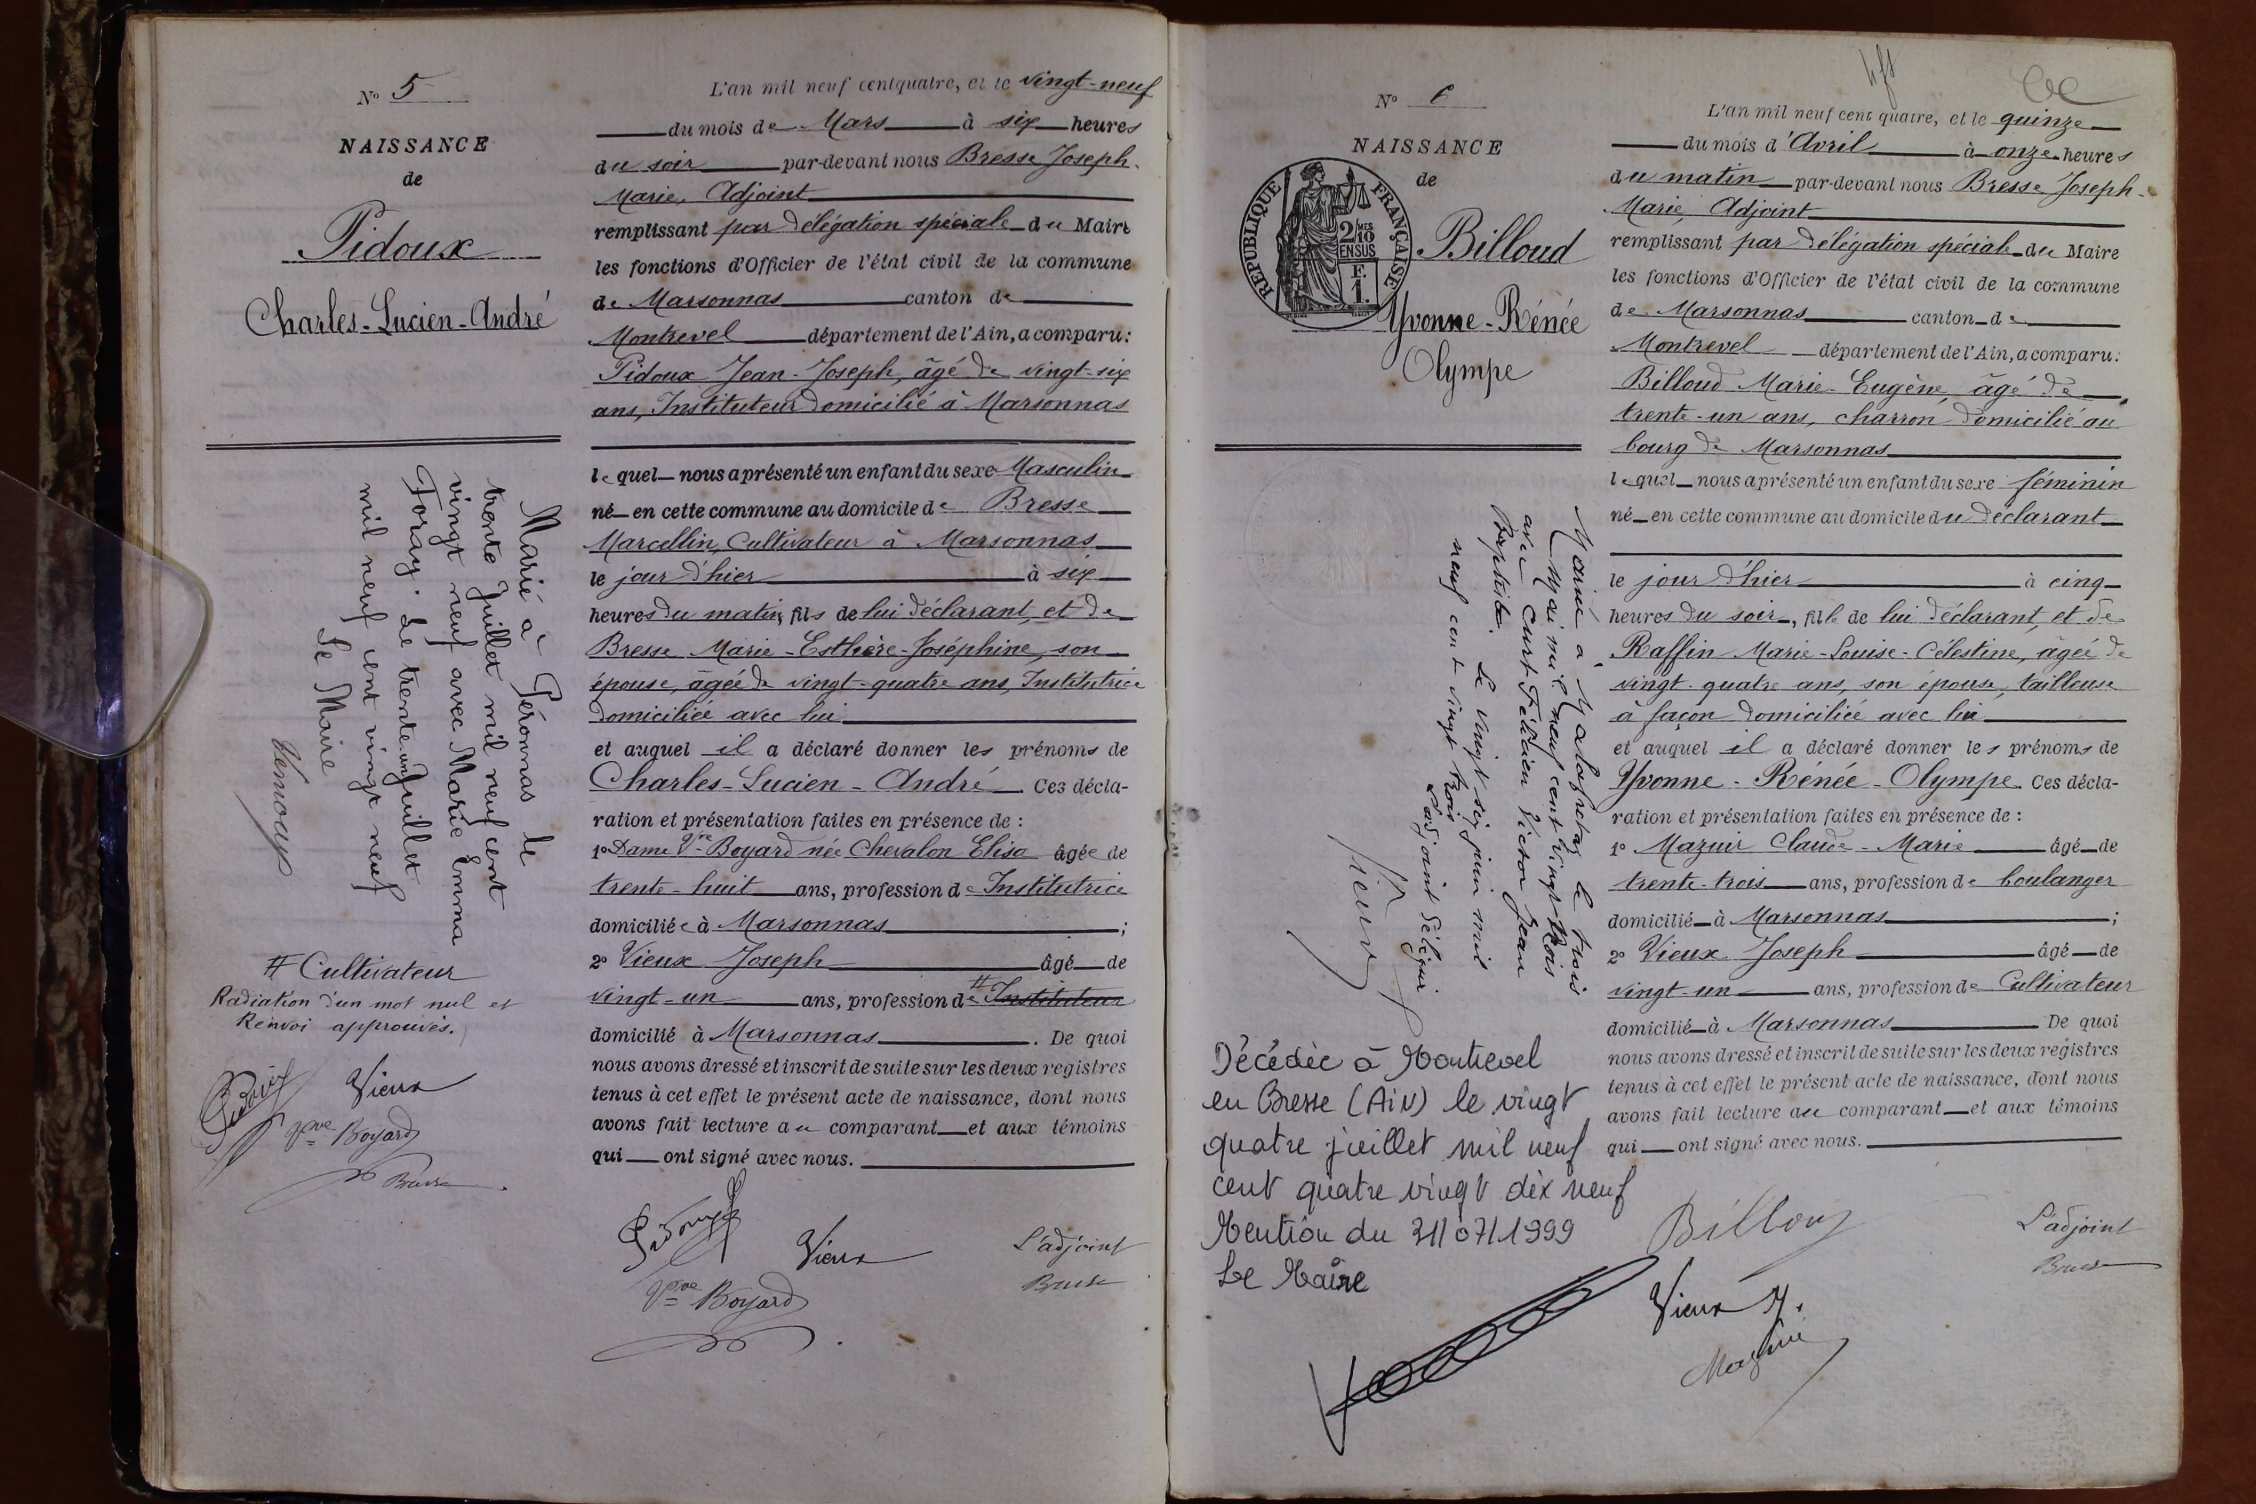 N° 5
NAISSANCE
de
Pidoux
Charles-Lucien-André
Marié à Péronnas le
trente Juillet mil neuf cent
vingt neuf avec Marie Emma
Foray. Le trente un Juillet
mil neuf cent vingt neuf
Le Maire
# Cultivateur
Radiation d'un mot nul et
Renvoi approuvés.
Vieux
Vve Boyard
Bresse
L'an mil neuf cent quatre, et le vingt-neuf
du mois de Mars à six heures
du soir par-devant nous Bresse Joseph-
Marie, Adjoint
remplissant par délégation spéciale du Maire
les fonctions d'Officier de l'état civil de la commune
de Marsonnas canton de
Montrevel département de l'Ain, a comparu:
Pidoux Jean-Joseph, âgé de vingt-six
ans, Instituteur domicilié à Marsonnas
lequel nous a présenté un enfant du sexe Masculin
né en cette commune au domicile de Bresse
Marcellin, Cultivateur à Marsonnas
le jour d'hier à six
heures du matin, fils de lui déclarant, et de
Bresse Marie-Esthère-Joséphine, son
épouse, âgée de vingt-quatre ans, Institutrice
domiciliée avec lui
et auquel il a déclaré donner les prénoms de
Charles-Lucien-André. Ces décla-
ration et présentation faites en présence de :
1° Dame Vve Boyard née Chevalon Elisa âgée de
trente-huit ans, profession de Institutrice
domiciliée à Marsonnas ;
2° Vieux Joseph âgé de
vingt-un ans, profession de # Instituteur
domicilié à Marsonnas. De quoi
nous avons dressé et inscrit de suite sur les deux registres
tenus à cet effet le présent acte de naissance, dont nous
avons fait lecture au comparant et aux témoins
qui ont signé avec nous.
Pidoux
Vieux
L'adjoint
Bresse
Vve Boyard
N° 6
NAISSANCE
de
REPUBLIQUE FRANÇAISE
2/10 MES
EN SUS
F.
1.
Billoud
Yvonne-Rénée
Olympe
Marié à Malafretaz le trois
Mai mil neuf cent vingt trois
avec Curt Félicien Victor Jean
Baptiste. Le vingt six juin mil
neuf cent vingt trois
L'adjoint délégué
Vieux
Décédée à Montrevel
en Bresse (AIN) le vingt
quatre juillet mil neuf
cent quatre vingt dix neuf
Mention du 31/07/1999
Le Maire
L'an mil neuf cent quatre, et le quinze
du mois d'Avril à onze heures
du matin par-devant nous Bresse Joseph-
Marie, Adjoint
remplissant par délégation spéciale du Maire
les fonctions d'Officier de l'état civil de la commune
de Marsonnas canton de
Montrevel département de l'Ain, a comparu:
Billoud Marie-Eugène âgé de
trente-un ans, charron, domicilié au
bourg de Marsonnas
lequel nous a présenté un enfant du sexe féminin
né en cette commune au domicile du déclarant
le jour d'hier à cinq
heures du soir, fille de lui déclarant, et de
Raffin Marie-Louise-Célestine, âgée de
vingt-quatre ans, son épouse, tailleuse
à façon domiciliée avec lui
et auquel il a déclaré donner les prénoms de
Yvonne-Rénée-Olympe. Ces décla-
ration et présentation faites en présence de :
1° Mazuir Claude-Marie âgé de
trente-trois ans, profession de boulanger
domicilié à Marsonnas ;
2° Vieux Joseph âgé de
vingt-un ans, profession de Cultivateur
domicilié à Marsonnas. De quoi
nous avons dressé et inscrit de suite sur les deux registres
tenus à cet effet le présent acte de naissance, dont nous
avons fait lecture au comparant et aux témoins
qui ont signé avec nous.
Billoud
L'adjoint
Bresse
Vieux J.
Mazuir